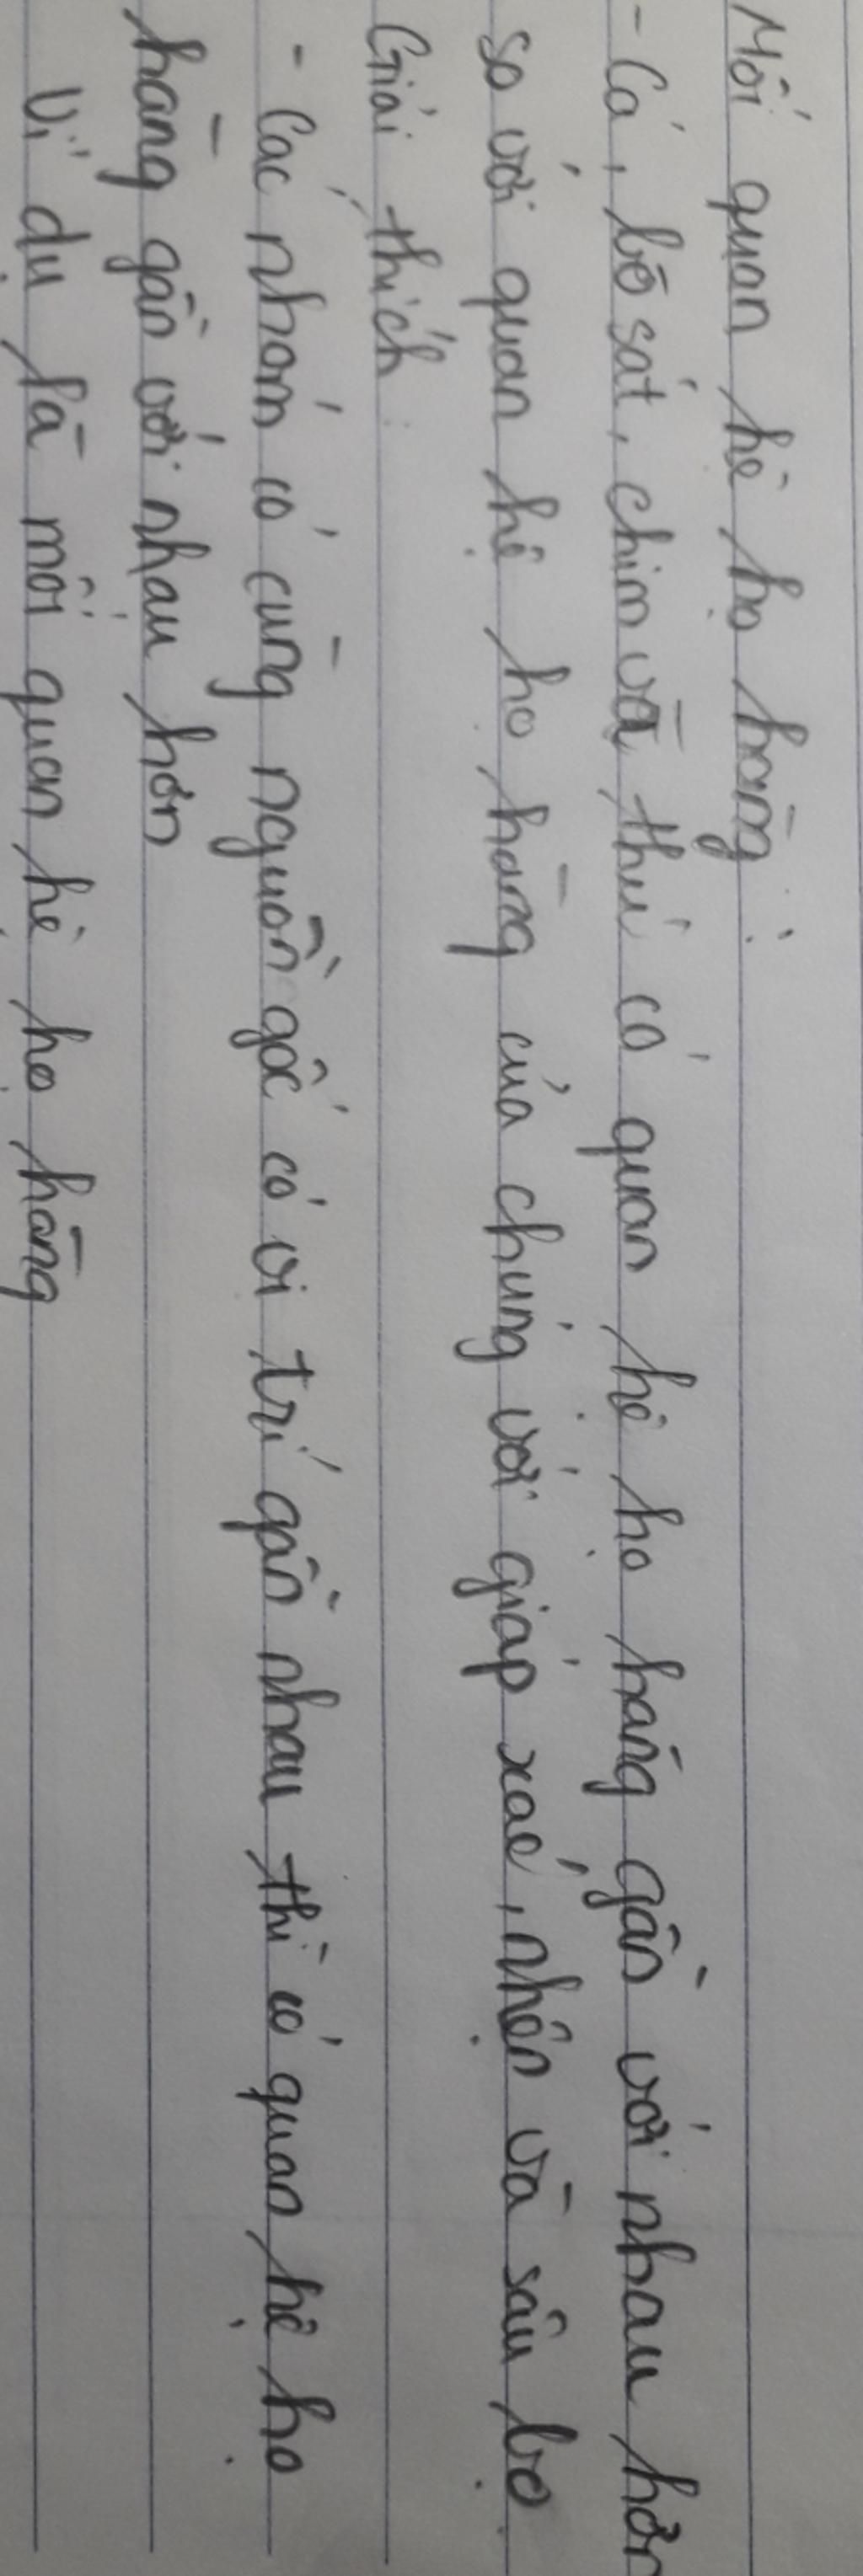 Mối quan hệ họ hàng:
- Cá, bò sát, chim và thú có quan hệ họ hàng gần với nhau hơn
so với quan hệ họ hàng của chúng với giáp xác, nhện và sâu bọ.
Giải thích:
- Các nhóm có cùng nguồn gốc có vị trí gần nhau thì có quan hệ họ
hàng gần với nhau hơn
Ví dụ là mối quan hệ họ hàng